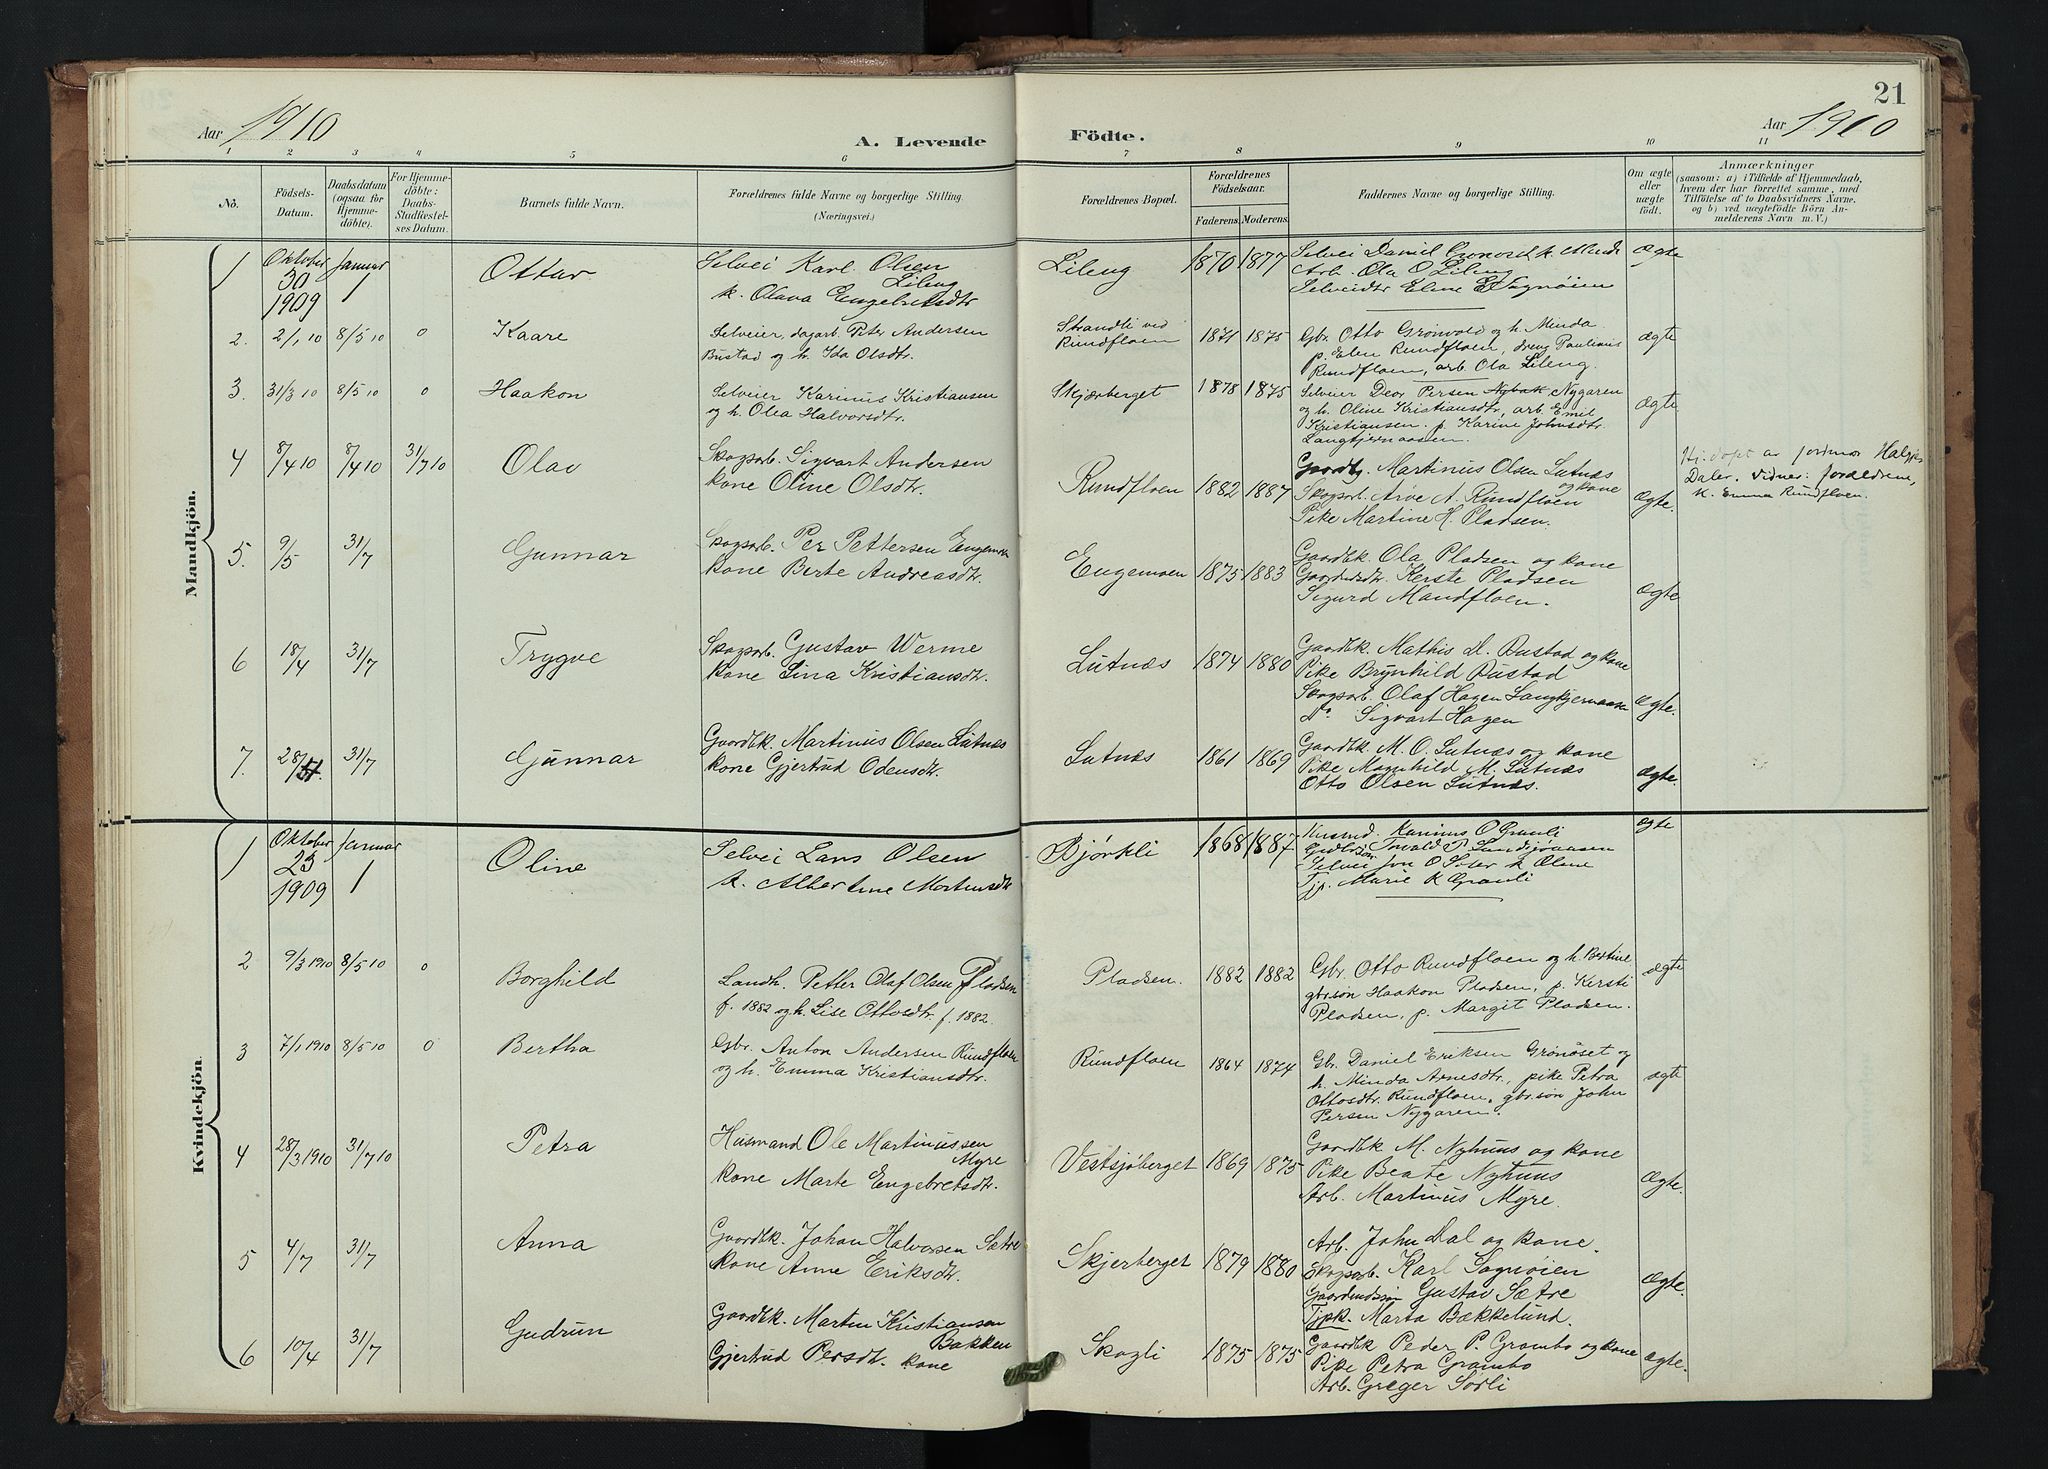 21
Aar 1910
A. Levende
Födte.
Aar 1910
1 2 3 4 5 6 7 8 9 10 11
No.
Födsels-
Datum.
Daabsdatum
(ogsaa for
Hjemme-
döbte).
For Hjemme-
döbte:
Daabs-
Stadfæstel-
ses Datum.
Barnets fulde Navn.
Forældrenes fulde Navne og borgerlige Stilling.
(Næringsvei.)
Forældrenes Bopæl.
Forældrenes
Födselsaar.
Faderens. Moderens.
Faddernes Navne og borgerlige Stilling.
Om ægte
eller
uægte
födt.
Anmærkninger
(saasom: a) i Tilfælde af Hjemmedaab,
hvem der har forrettet samme, med
Tilföielse af to Daabsvidners Navne,
og b) ved uægtefödte Börn An-
melderens Navn m. V.)
Mandkjön.
1 Oktober 30 1909 Januar 1 Ottar
Selvei Karl Olsen
Lileng
k. Olava Engebretsdtr
Lileng 1870 1877
Selvei Daniel k. Minda
Arb. Ola O Lileng
Selveidtr Eline E Sagnöien
Ægte
2. 2/1 10 8/5 10 0 Kaare
Selveier, dagarb. Peter Andersen
Bustad og h. Ida Olsdtr.
Strandli ved
Rundfloen 1871 1875
Gbr. Otto Grönvold og h. Minda
p. Elen Rundfloen, dreng Paulinus
Rundfloen, arb. Ola Lileng.
ægte
3. 31/3 10 8/5 10 0 Haakon
Selveier Karinus Kristiansen
og h. Olea Halvorsdtr.
Skjærberget 1878 1875
Selveier Deor Persen Nybak Nygaren
og h. Oline Kristiansdtr, arb. Emil
Kristiansen. p. Karine Johnsdtr.
Langtjernaasen.
ægte
4 8/4 10 8/4 10 31/7 10 Olav
Skogsarb. Sigvart Andersen
kone Oline Olsdtr.
Rundfloen 1882 1887
Gaardbr. Martinus Olsen Lutnæs
og kone
Skogsarb. Arve A. Rundfloen
Pike Martine H. Pladsen.
Ægte.
Hj: döpt av jordmor
Daler. Vidner: foraldrene,
k. Emma Rundfloen.
5. 9/5 31/7 Gunnar
Skogsarb. Per Pettersen Engemoen
kone Berte Andreasdtr.
Engemoen 1875 1883
Gaardbk. Ola Pladsen og kone
Gaardmdsdtr. Kerste Pladsen
Sigurd Mandfloen.
ægte
6 18/4 31/7 Trygve
Skogsarb. Gustav Werme
kone Lina Kristiansdtr.
Lutnæs 1874 1880
Gaardbk. Mathis M. Bustad og kone
Pike Brynhild Bustad
Skogsarb. Olaf Hagen Langtjernaasen
Do Sigvart Hagen
Ægte.
7. 28/ 31/7 Gunnar
Gaardbk. Martinus Olsen Lutnæs
kone Gjertrud Odensdtr.
Lutnæs 1861 1869
Gaardbk M. O. Lutnæs og kone
Pike Magnhild M. Lutnæs
Otto Olsen Lutnæs.
Ægte.
Kvindekjön.
1 Oktober 25 1909 Januar 1 Oline
Selvei Lars Olsen
k. Albertine Mortensdtr
Bjørkli 1868 1887
Husmd. Karinus O Granli
Selvei Jon O Sæter k Oline
Tjp. Marie K Granli
ægte
2 9/3 1910 8/5 10 0 Borghild
Landh. Petter Olaf Olsen Pladsen
f. 1882 og h. Lise Ottosdtr. f. 1882.
Pladsen. 1882 1882
Gbr. Otto Rundfloen og h. Bertine
gbr.søn Haakon Pladsen, p. Kersti
Pladsen, p. Margit Pladsen.
ægte
3 7/1 1910 8/5 10 0 Bertha
Gbr. Anton Andersen Rundfloen
og h. Emma Kristiansdtr.
Rundfloen 1864 1874
Gbr. Daniel Eriksen Grönöset og
h. Minda Arnesdtr., pike Petra
Ottosdtr. Rundfloen, gbr.søn John
Persen Nygaren.
ægte
4 28/3 1910 31/7 10 Petra
Husmand Ole Martinussen
Myre
kone Marte Engebretsdtr.
Vestsjöberget 1869 1875
Gaardbk M. Nyhuus og kone
Pike Beate Nyhuus
Arb. Martinus Myre.
Ægte.
5 4/7 31/7 Anna
Gaardbk. Johan Halvorsen Sætre
kone Anne Eriksdtr.
Skjerberget 1879 1880
Arb. John Dal og kone.
Skogsarb. Karl Sagnöien
Gaardmdssön Gustav Sætre
Tjpk. Marta Bækkelund.
Ægte.
6 10/4 31/7 Gudrun
Gaardbk. Martin Kristiansen
Bakken
Gjertrud Persdtr. kone
Skogli 1875 1875
Gaardbk Peder P. Grambo og kone
Pike Petra Grambo
Arb. Greger Sörli
Ægte.